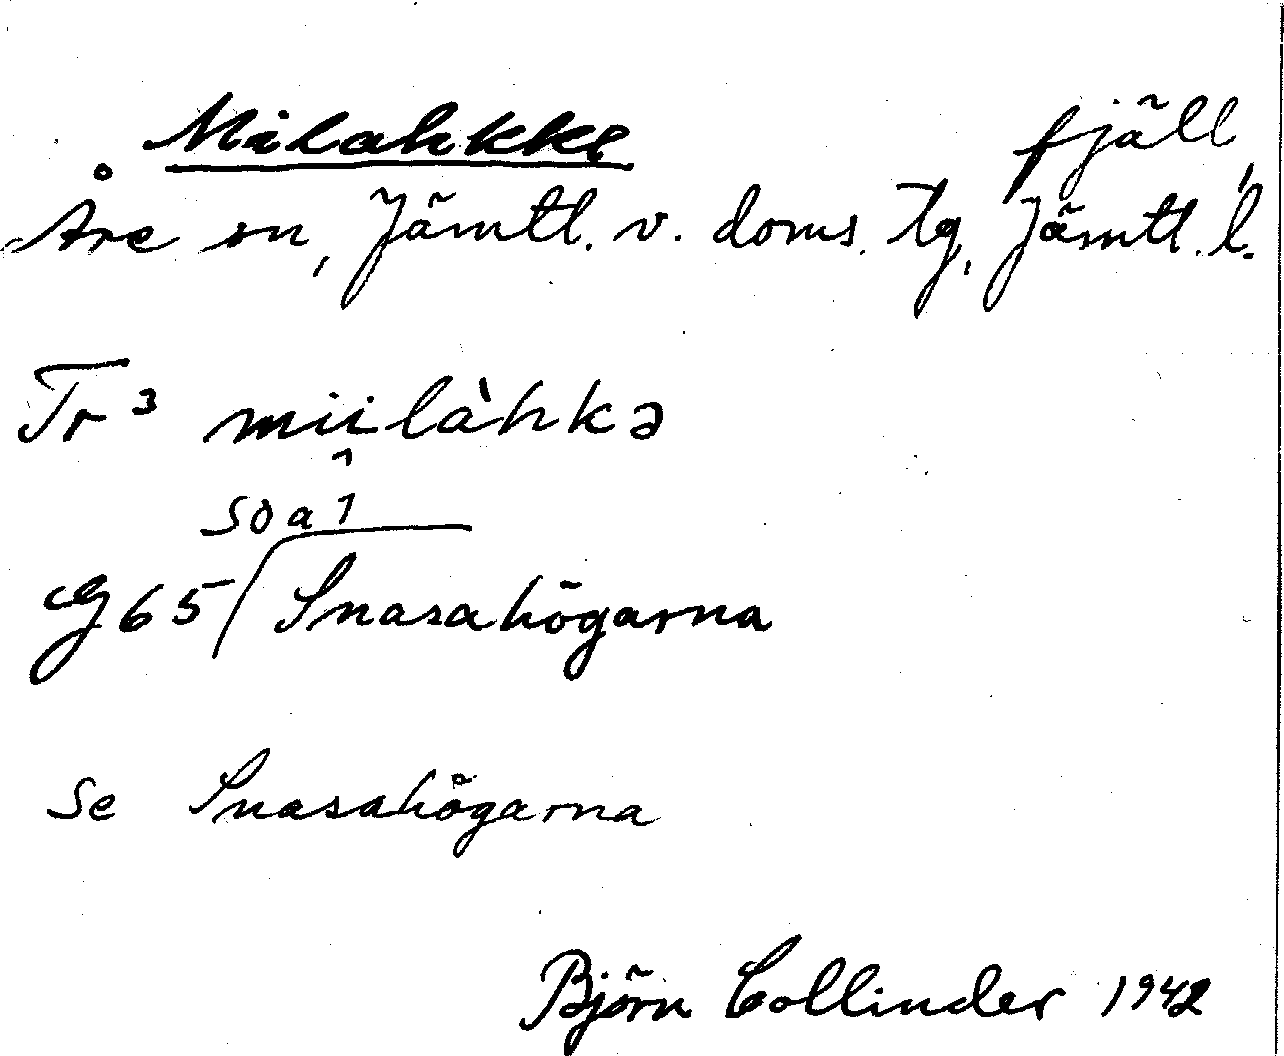 Milahkke fjäll,
Åre sn, Jämtl. v. doms. tg, Jämtl. l.
Tr³ miilàhkə
SO a 1
G 65 Snasahögarna
Se Snasahögarna
Björn Collinder 1942